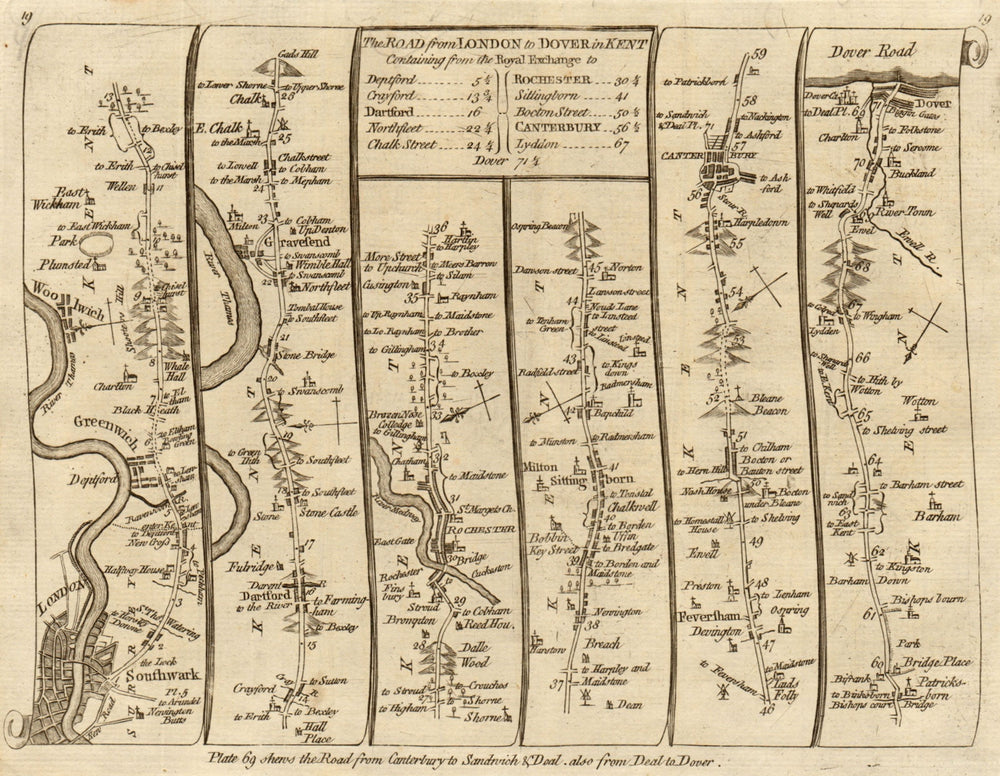 19
19
The ROAD from LONDON to DOVER in KENT
Containing from the Royal Exchange to
Deptford 5¼
Crayford 13¾
Dartford 16
Northfleet 22¼
Chalk Street 24¼
ROCHESTER 30¼
Sittingborn 41
Bocton Street 50½
CANTERBURY 56½
Lyddon 67
Dover 71½
13
to Erith
to Bexley
to Erith
to Chisel hurst
Wellen
11
East Wickham
to East Wickham
Park
Plumsted
to Chisel hurst
9
Woolwich
Shooters Hill
8
Whale Hall
River Thames
Charlton
7
to Eltham
Black Heath
Greenwich
to Eltham
Bowling Green
Deptford
to Lewisham
Ravensborn R.
5
enter Kent
to Deptford
New Cross
4
Halfway House
to Peckham
3
LONDON
2
the Lock
Southwark
Pl. 5
to Arundel
Newington Butts
New Road
KENT
SURRY
Gads Hill
to Lower Shorne
to Upper Shorne
Chalk
26
E. Chalk
to the Marsh
25
Chalkstreet
to Cobham
to Mepham
to the Marsh
24
23
to Cobham
Milton
Up Denton
Gravesend
to Swanscomb
Wimble Hall
to Swanscomb
22
Northfleet
River Thames
Tombal House
to Southfleet
21
Stone Bridge
20
to Swanscomb
19
to Green Hith
to Southfleet
18
to Southfleet
Stone
Stone Castle
17
Fulridge
Darent R.
Dartford
16
to the River
to Farmingham
to Bexley
15
to Sutton
Cray R.
Crayford
to Erith
to Bexley
Hall Place
KENT
36
Hartlip
to Harpley
More Street
to Upchurch
to Meers Barrow
to Silam
Cusington
35
Raynham
to Up Raynham
to Maidstone
to Lo. Raynham
to Brother
to Gillingham
34
to Boxley
Brazen Nose Colledge
to Gillingham
33
Chatham
32
to Maidstone
River Medway
31
St. Margets Ch.
ROCHESTER
East Gate
30
Bridge
Rochester
Cuckston
Finsbury
29
Stroud
to Cobham
Brompton
Reed Hou.
28
Dalle Wood
to Stroud
to Crouches
to Shorne
to Higham
27
Shorne
KENT
Ospring Beacon
Dawson street
45
Norton
Lawson street
44
Noude Lane
to Linsteed street
to Tenham Green
to Linsteed
Linsteed
43
to Kingsdown
Radfield street
Radmersham
42
Bapchild
to Munston
to Radmersham
Milton
41
Sittingborn
to Tonstal
Chalkwell
40
to Borden
Bobbin
Ufim
Key Street
to Bredgate
39
to Borden and Maidstone
Newington
38
Harston
Breach
to Harpley and Maidstone
37
Dean
KENT
59
to Patrickborn
58
to Sandwich & Deal Pl. 71
to Nackington
to Ashford
57
CANTERBURY
to Ashford
56
Stower R.
Harpledown
55
54
53
52
Bleane Beacon
51
to Chilham
Bocton or Bauton street
to Hern Hill
50
Nash House
Bocton under Bleane
to Homestall House
to Shelving
49
Ewell
Preston
48
to Lenham
Ospring
Feversham
Devington
47
to Feversham
to Maidstone
Juds Folly
46
KENT
Dover Road
Dover Ca.
to Deal Pl. 69
71
Dover
Charlton
to Folkstone
to Soresme
70
Buckland
to Whitfield
to Shepards Well
69
River Town
Ewel
Ewell R.
68
67
to Wingham
to Cold
Lydden
to Shepard Well
66
to Hith by Wotton
Wotton
65
to Shelving street
64
to Barham street
to Sandwich
63
to East Kent
Barham
62
to Kingston
Barham Down
61
Bishops bourn
Park
60
Bridge Place
Bifrank
Patricksborn
to Binksborn
Bishops court
Bridge
KENT
Plate 69 shews the Road from Canterbury to Sandwich & Deal. also from Deal to Dover.